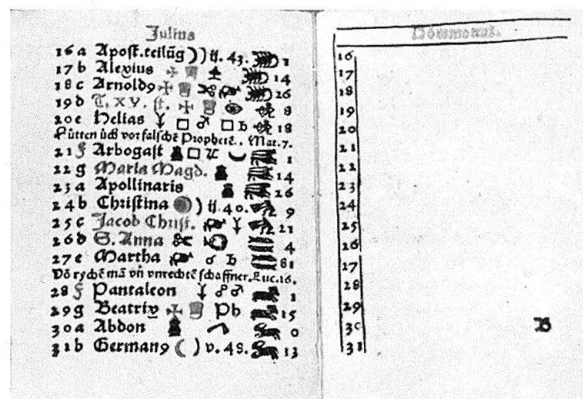 Julius
16 a Apost. teilūg ) ) ij. 43. 1
17 b Alexius 14
18 c Arnold9 26
19 d T. xv. st. 8
20 e Helias ♂ □ ♄ 18
Hütten üch vor falschē Prophetē. Mat. 7.
21 f Arbogast □ ♃ 1
22 g Maria Magd. 14
23 a Apollinaris 26
24 b Christina ) ij. 40. 9
25 c Jacob Christ. 21
26 d S. Anna 4
27 e Martha ☌ ♄
Vō rychē mā vñ vnrechtē schaffner. Luc. 16.
28 f Pantaleon ☍ ♂ 1
29 g Beatrix Pb 15
30 a Abdon 0
31 b German9 ) v. 48. 13
Hommonat.
16
17
18
19
20
21
22
23
24
25
26
27
28
29
30
31